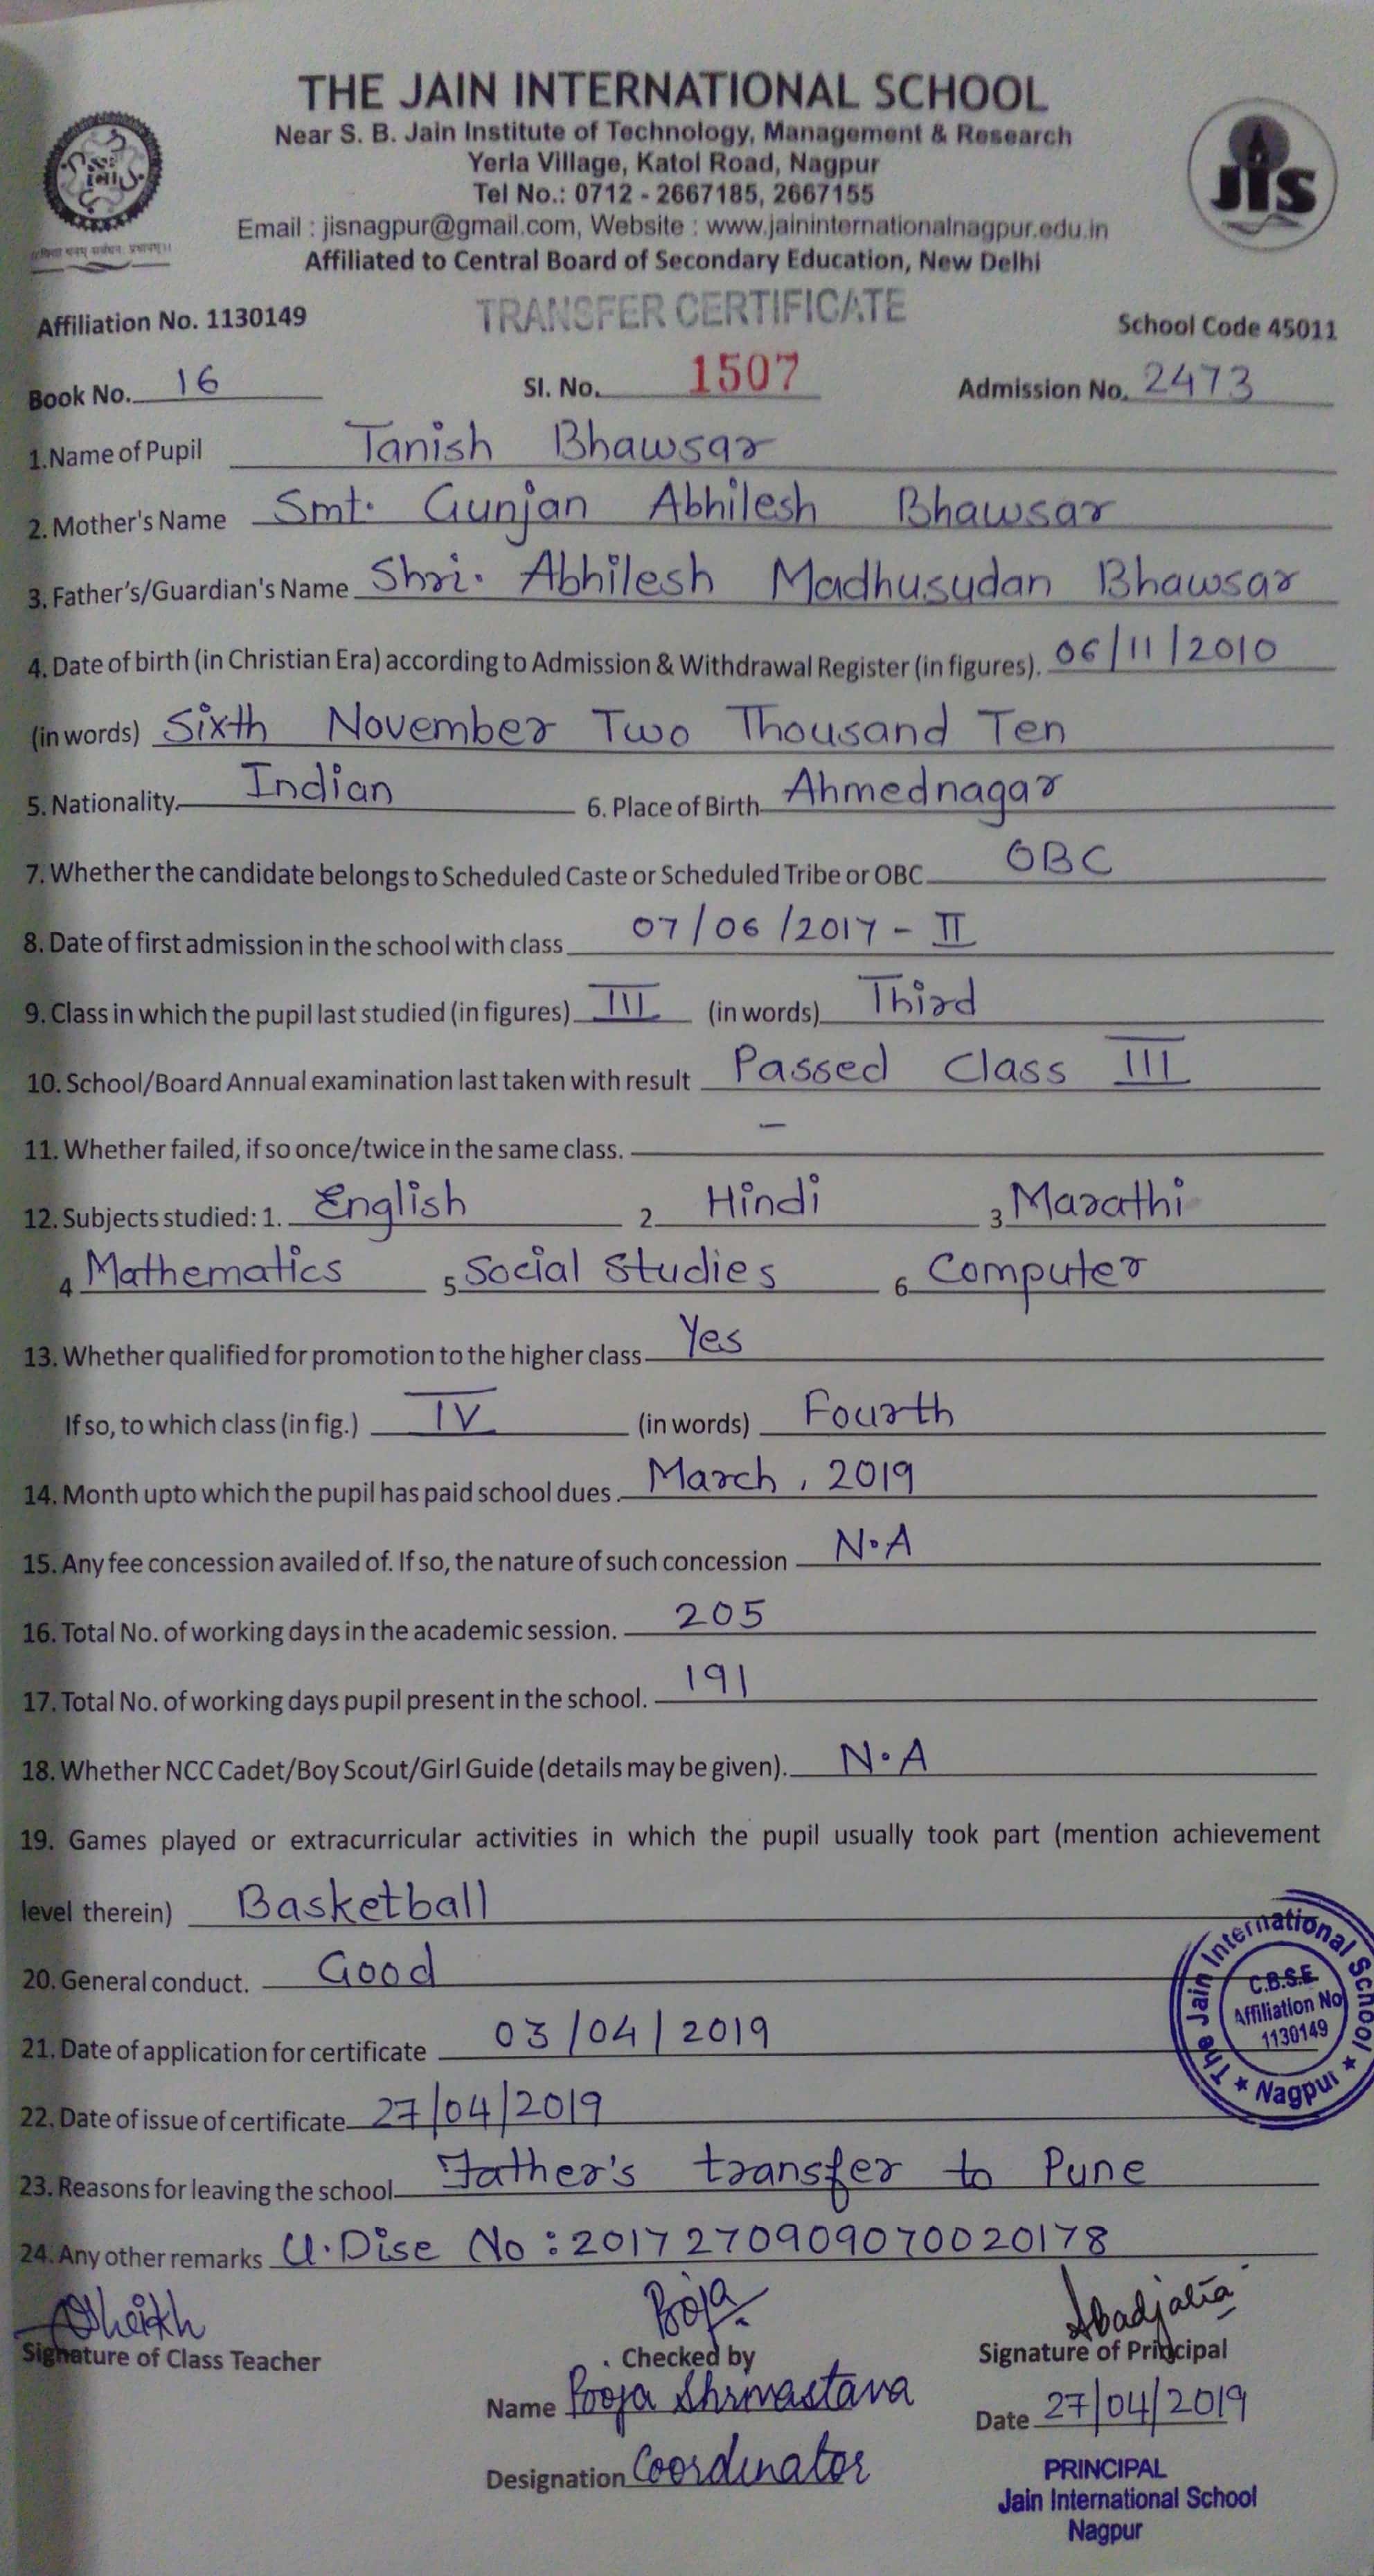 THE JAIN INTERNATIONAL SCHOOL
Near S. B. Jain Institute of Technology, Management & Research
Yerla Village, Katol Road, Nagpur
Tel No.: 0712 - 2667185, 2667155
Email : jisnagpur@gmail.com, Website : www.jaininternationalnagpur.edu.in
Affiliated to Central Board of Secondary Education, New Delhi
jIs
TRANSFER CERTIFICATE
Affiliation No. 1130149 School Code 45011
Book No. 16 Sl. No. 1507 Admission No. 2473
1.Name of Pupil Tanish Bhawsar
2. Mother's Name Smt. Gunjan Abhilesh Bhawsar
3. Father's/Guardian's Name Shri. Abhilesh Madhusudan Bhawsar
4. Date of birth (in Christian Era) according to Admission & Withdrawal Register (in figures). 06/11/2010
(in words) Sixth November Two Thousand Ten
5. Nationality Indian 6. Place of Birth Ahmednagar
7. Whether the candidate belongs to Scheduled Caste or Scheduled Tribe or OBC OBC
8. Date of first admission in the school with class 07/06/2017 - II
9. Class in which the pupil last studied (in figures) III (in words) Third
10. School/Board Annual examination last taken with result Passed Class III
11. Whether failed, if so once/twice in the same class. -
12. Subjects studied: 1. English 2 Hindi 3 Marathi
4 Mathematics 5 Social Studies 6 Computer
13. Whether qualified for promotion to the higher class Yes
If so, to which class (in fig.) IV (in words) Fourth
14. Month upto which the pupil has paid school dues. March, 2019
15. Any fee concession availed of. If so, the nature of such concession N.A
16. Total No. of working days in the academic session. 205
17. Total No. of working days pupil present in the school. 191
18. Whether NCC Cadet/Boy Scout/Girl Guide (details may be given). N.A
19. Games played or extracurricular activities in which the pupil usually took part (mention achievement
level therein) Basketball
20. General conduct. Good
21. Date of application for certificate 03/04/2019
22. Date of issue of certificate 27/04/2019
The Jain International School ★ Nagpur ★
C.B.S.E
Affiliation No
1130149
23. Reasons for leaving the school Father's transfer to Pune
24. Any other remarks U.Dise No : 2017270909070020178
Sheikh Pooja
Signature of Class Teacher Checked by Signature of Principal
Name Pooja Shrivastava Date 27/04/2019
Designation Coordinator
PRINCIPAL
Jain International School
Nagpur